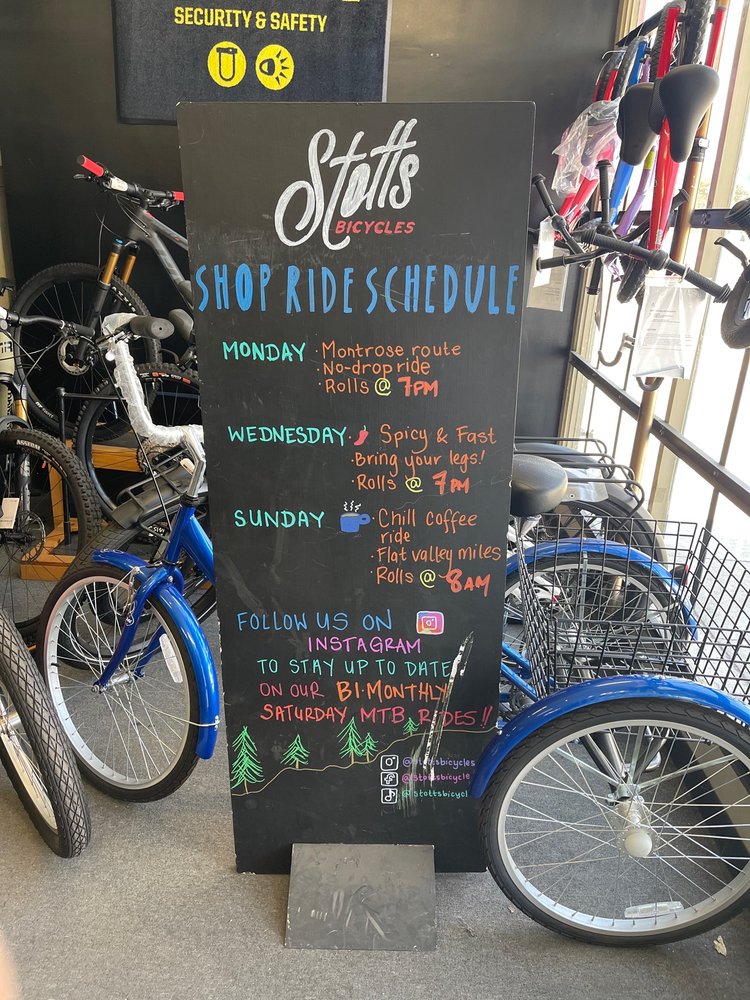 SECURITY & SAFETY
Stotts
BICYCLES
SHOP RIDE SCHEDULE
MONDAY · Montrose route
· No-drop ride
· Rolls @ 7PM
WEDNESDAY · Spicy & Fast
· Bring your legs!
· Rolls @ 7PM
SUNDAY · Chill coffee
ride
· Flat valley miles
Rolls @ 8AM
FOLLOW US ON
INSTAGRAM
TO STAY UP TO DATE
ON OUR BI-MONTHLY
SATURDAY MTB RIDES!!
@stottsbicycles
@stottsbicycle
@stottsbicycl